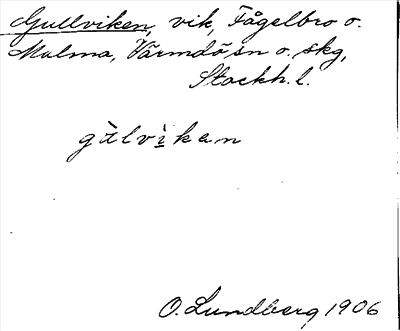 Gullviken, vik, Fågelbro o.
Malma, Värmdö sn o. skg,
Stockh. l.
gùlvìkan
O. Lundberg 1906